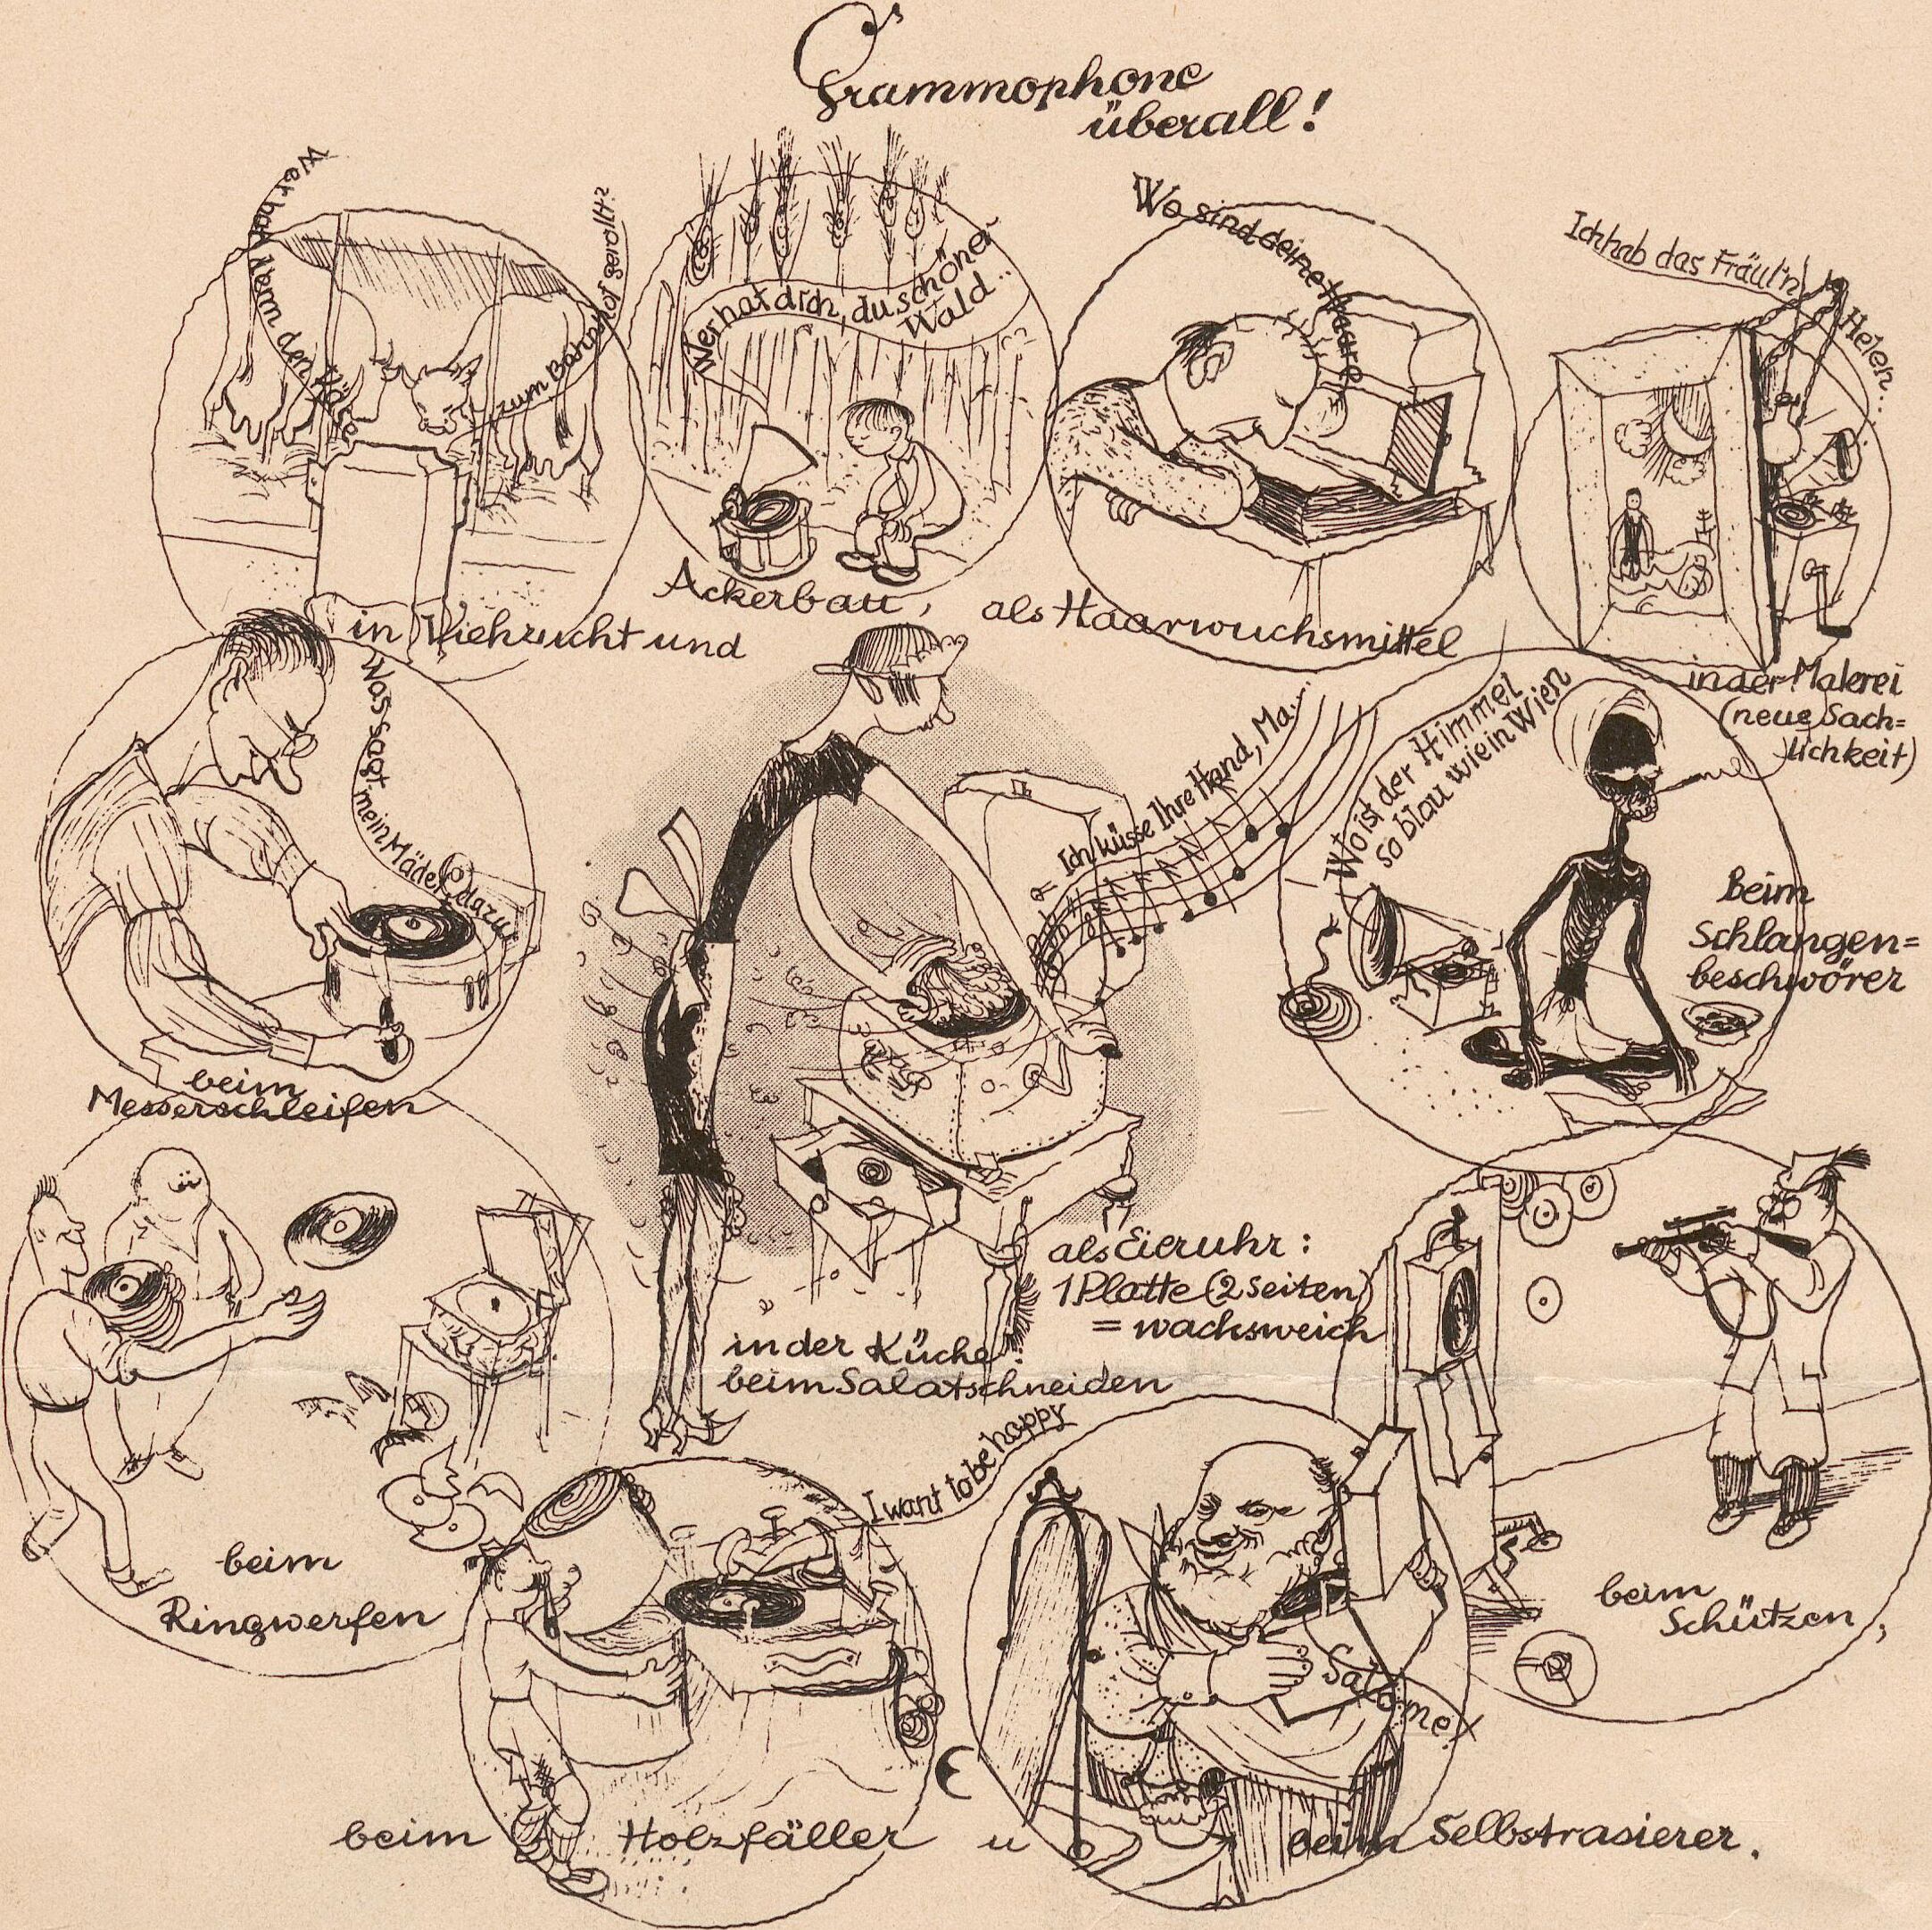 Grammophone
überall!
Wer hat denn den Käse
zum Bahnhof gerollt?
in Viehzucht und
Wer hat dich, du schöner
Wald...
Ackerbau,
Wo sind deine Haare
als Haarwuchsmittel
Ich hab das Fräul'n
Helen...
in der Malerei
(neue Sach=
lichkeit)
Was sagt mein Mädel dazu
beim
Messerschleifen
Ich küsse Ihre Hand, Ma...
in der Küche:
beim Salatschneiden
als Eieruhr:
1 Platte (2 Seiten)
= wachsweich
Wo ist der Himmel
so blau wie in Wien
Beim
Schlangen=
beschwörer
beim
Ringwerfen
beim
Schützen,
I want to be happy
beim Holzfäller u
Salome!
beim Selbstrasierer.